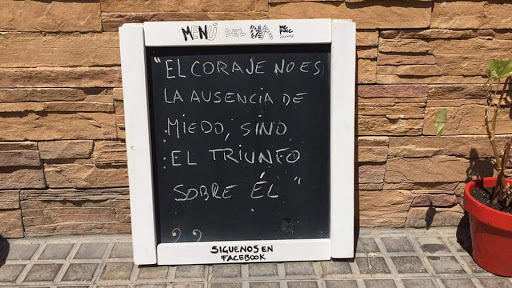 MENÚ DEL DIA
"EL CORAJE NO ES
LA AUSENCIA DE
MIEDO, SINO
EL TRIUNFO
SOBRE ÉL"
SIGUENOS EN
FACEBOOK